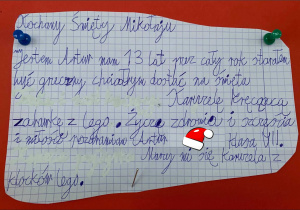 Kochany Święty Mikołaju
Jestem Artur mam 13 lat przez cały rok starałem
być grzeczny, chciałbym dostać na święta
Karuzelę Kręcącą
zabawkę z lego. Życzę zdrowia i szczęścia
i miłości pozdrawiam Artur klasa VII.
Marzy mi się Karuzela z
klocków lego.